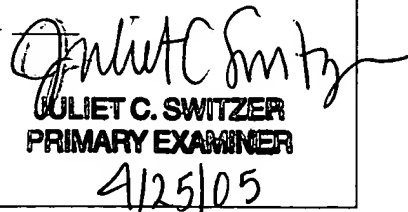 Juliet C Switzer
JULIET C. SWITZER
PRIMARY EXAMINER
4/25/05